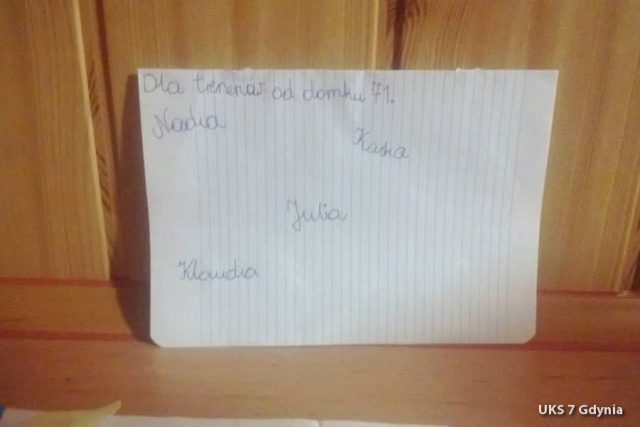 Dla trenerów od domku 71.
Nadia
Kasia
Julia
Klaudia
UKS 7 Gdynia